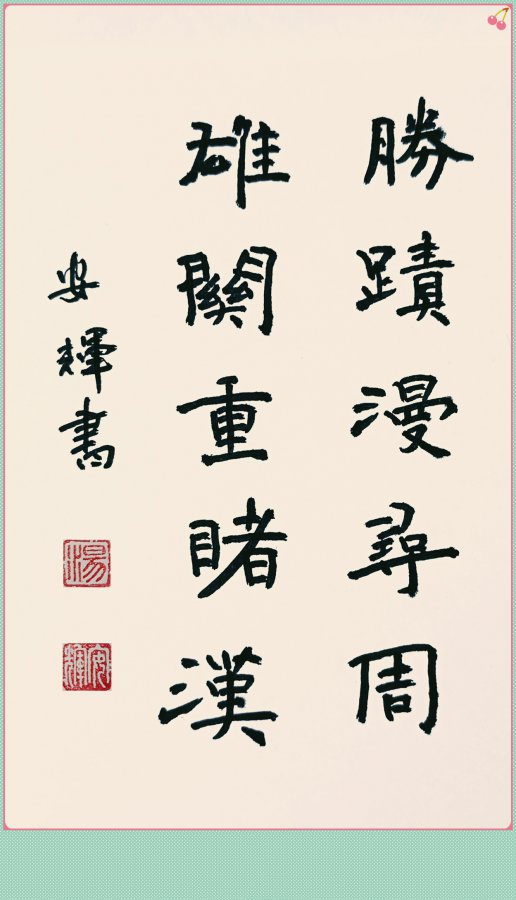 勝蹟漫尋周
雄關重睹漢
安輝書
湯
安輝